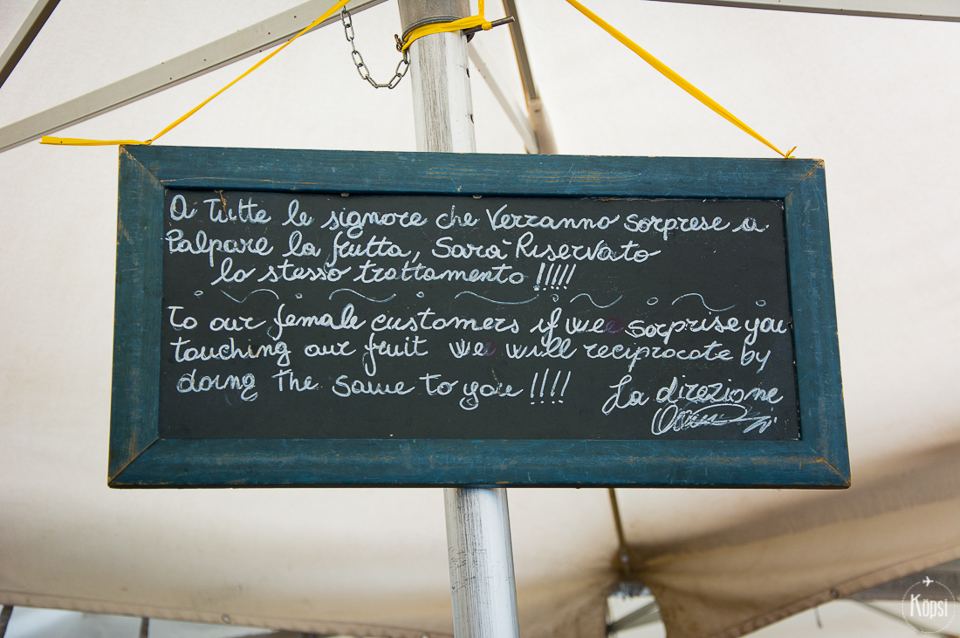 A Tutte le signore che Verranno sorprese a
Palpare la frutta, Sarà Riservato
lo stesso trattamento !!!!!
To our female customers if wee sorprise you
touching our fruit we will reciprocate by
doing The same to you !!!!
La direzione
Köpsi